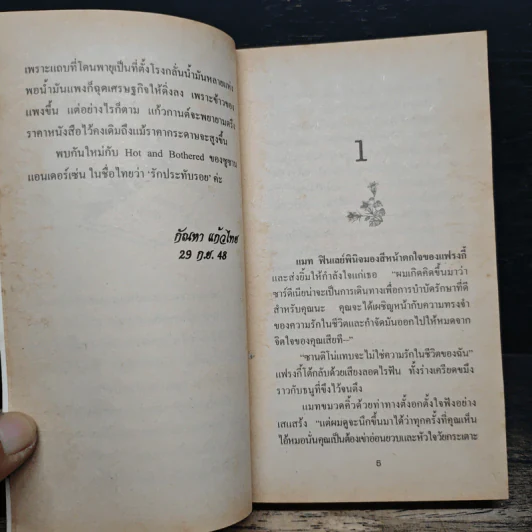 เพราะแถบที่โดนพายุเป็นที่ตั้งโรงกลั่นน้ำมันหลายแห่ง
พอน้ำมันแพงก็ฉุดเศรษฐกิจให้ดิ่งลง เพราะข้าวของ
แพงขึ้น แต่อย่างไรก็ตาม แก้วกานต์จะพยายามตรึง
ราคาหนังสือไว้คงเดิมถึงแม้ราคากระดาษจะสูงขึ้น
พบกันใหม่กับ Hot and Bothered ของซูซาน
แอนเดอร์เซ่น ในชื่อไทยว่า 'รักประทับรอย' ค่ะ
กัณหา แก้วไทย
29 ก.ย. 48
1
แมท ฟินเลย์พินิจมองสีหน้าตกใจของแฟรงกี้
และส่งยิ้มให้กำลังใจแก่เธอ "ผมเกิดคิดขึ้นมาว่า
ซาร์ดิเนียน่าจะเป็นการเดินทางเพื่อการบำบัดรักษาที่ดี
สำหรับคุณนะ คุณจะได้เผชิญหน้ากับความทรงจำ
ของความรักในชีวิตและกำจัดมันออกไปให้หมดจาก
จิตใจของคุณเสียที--"
"ซานติโน่แทบจะไม่ใช่ความรักในชีวิตของฉัน"
แฟรงกี้โต้กลับด้วยเสียงลอดไรฟัน ทั้งร่างเครียดขมึง
ราวกับธนูที่ขึงไว้จนตึง
แมทขมวดคิ้วด้วยท่าทางตั้งอกตั้งใจฟังอย่าง
เสแสร้ง "แต่ผมดูจะนึกขึ้นมาได้ว่าทุกครั้งที่คุณเห็น
ไอ้หมอนั่นคุณเป็นต้องเข่าอ่อนยวบและหัวใจวัยกระเตาะ
5